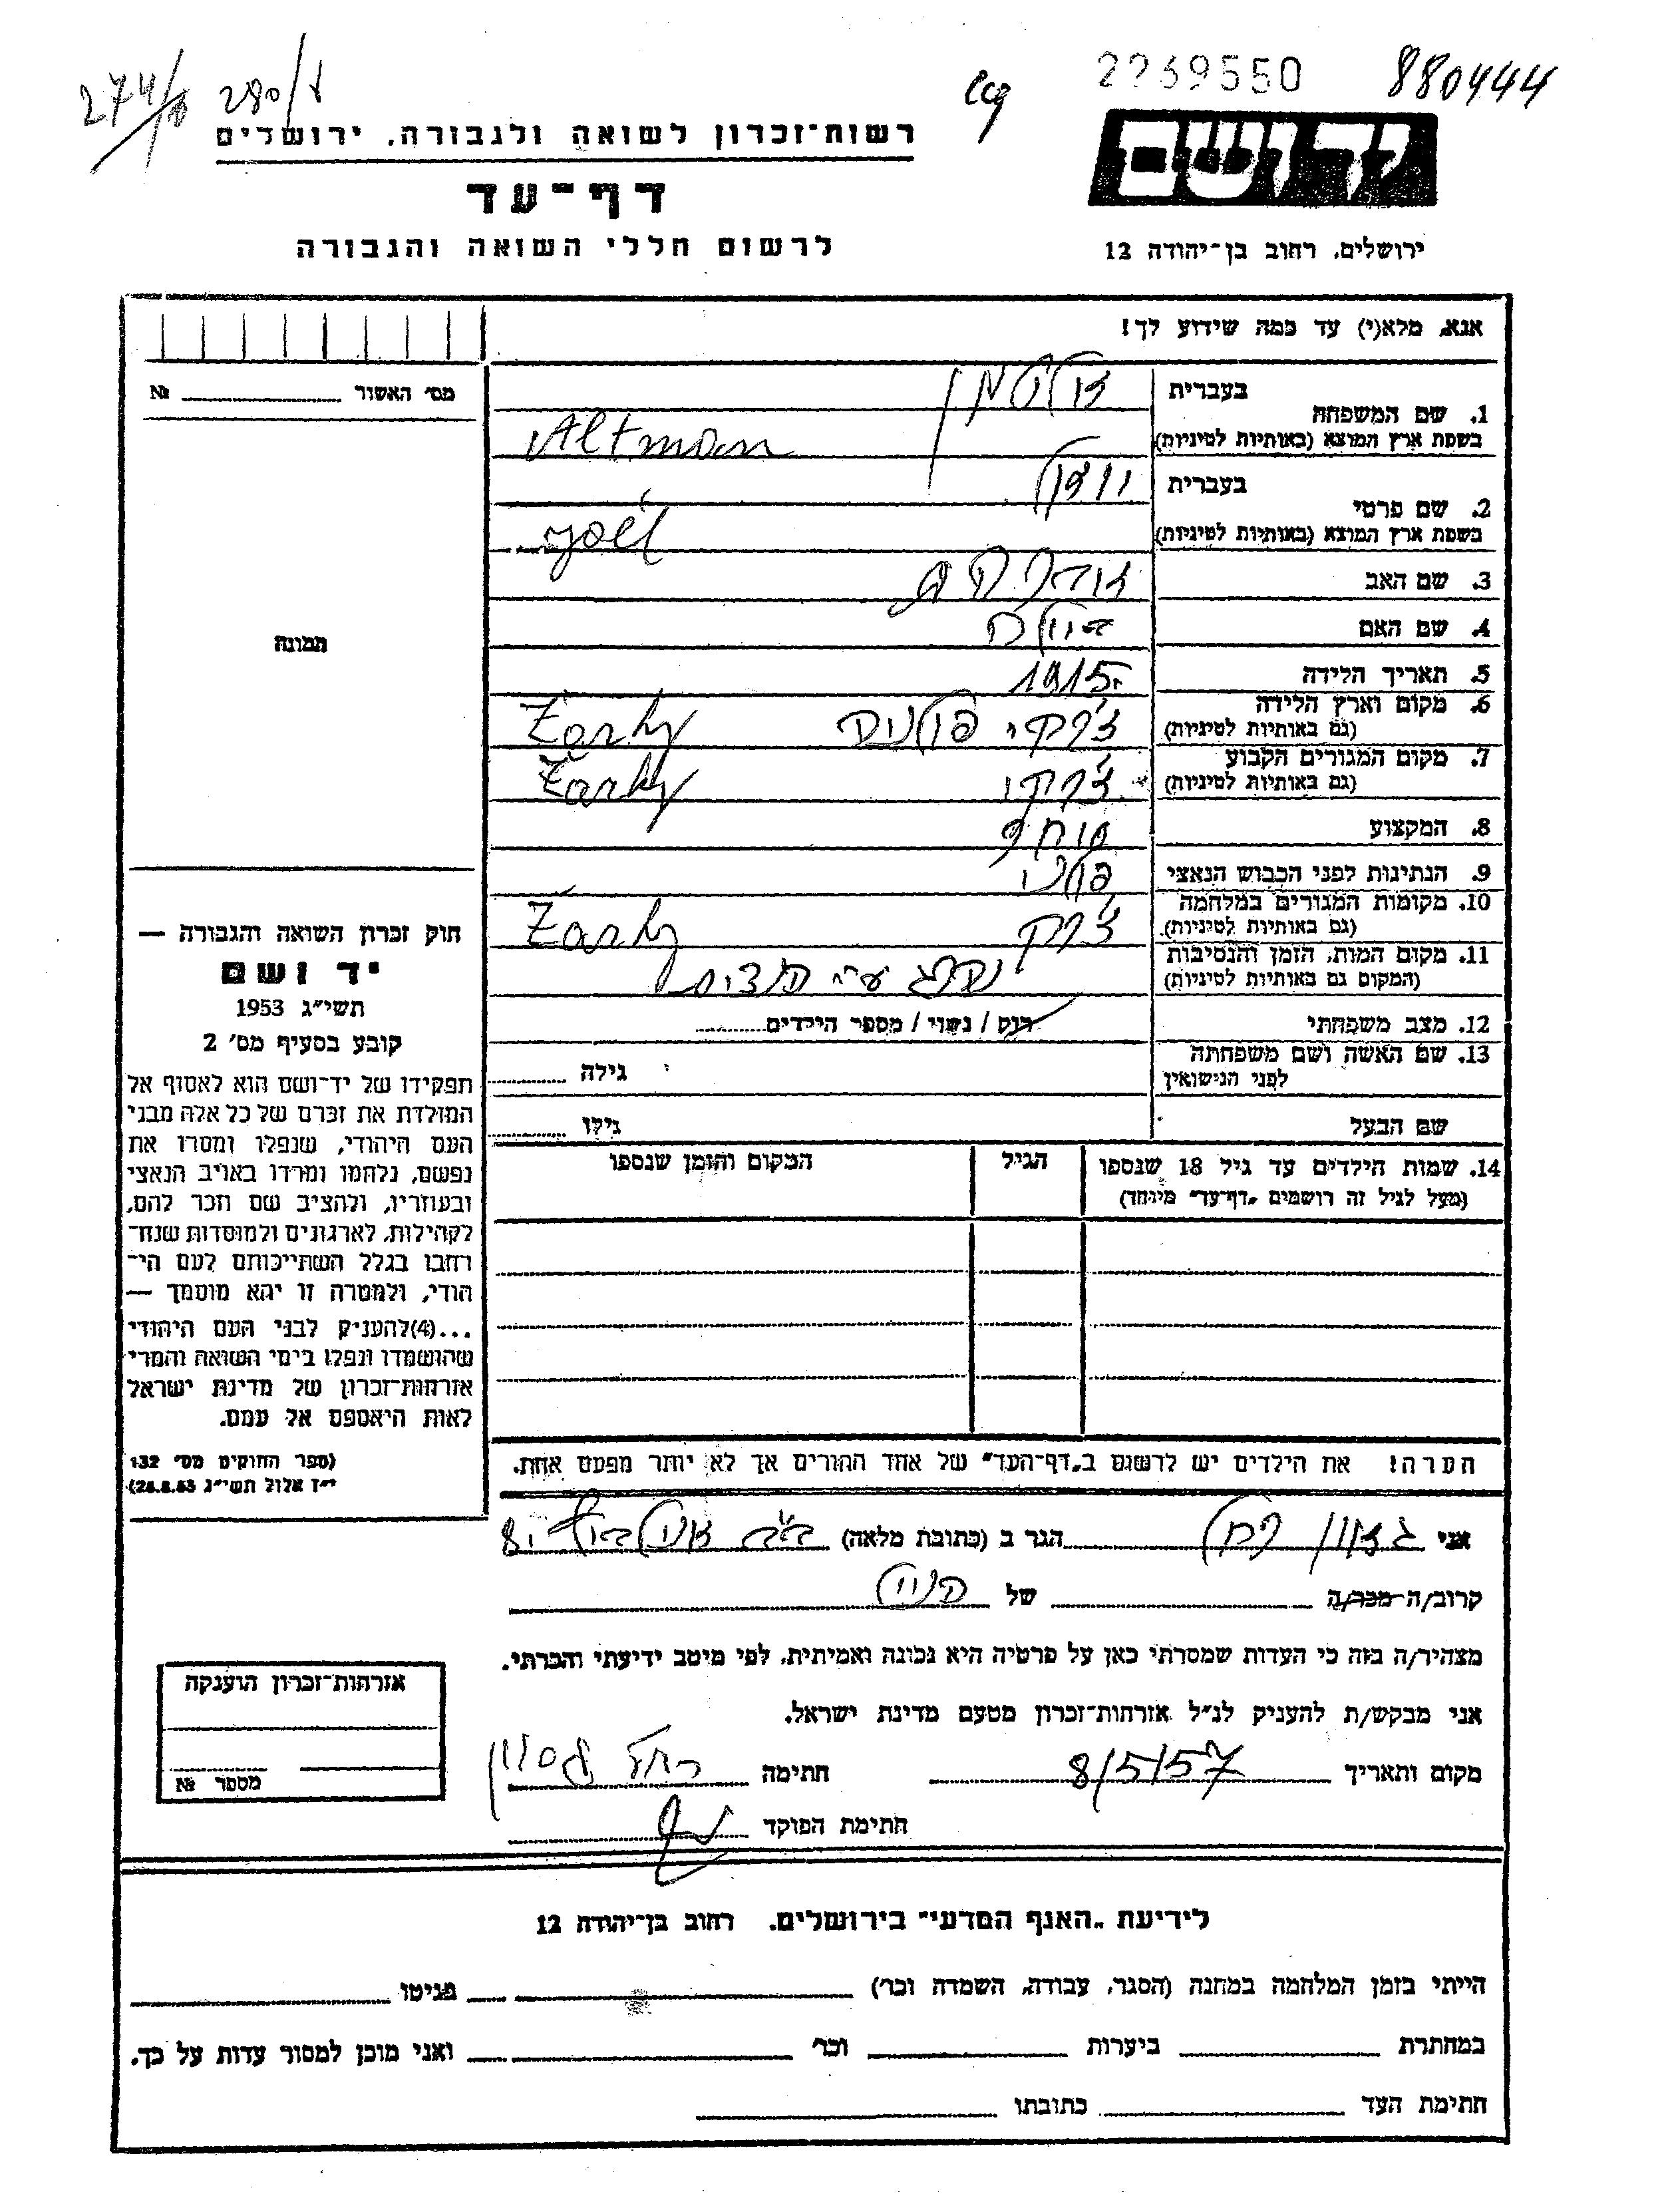 274/ 280/
2269550
880444
רשות־זכרון לשואה ולגבורה. ירושלים
ידושם
דף־עד
לרשום חללי השואה והגבורה
ירושלים, רחוב בן־יהודה 12
אנא, מלא(י) עד כמה שידוע לך!
מס׳ האשור № 
1. שם המשפחה בעברית אלטמן
בשפת ארץ המוצא (באותיות לטיניות) Altman
2. שם פרטי בעברית יואל
בשפת ארץ המוצא (באותיות לטיניות) Joel
3. שם האב
4. שם האם
5. תאריך הלידה 1915
6. מקום וארץ הלידה (גם באותיות לטיניות) ז׳רקי פולניה Żarky
7. מקום המגורים הקבוע (גם באותיות לטיניות) ז׳רקי Żarky
8. המקצוע סוחר
9. הנתינות לפני הכבוש הנאצי פולני
10. מקומות המגורים במלחמה (גם באותיות לטיניות) ז׳רקי Żarky
11. מקום המות, הזמן והנסיבות (המקום גם באותיות לטיניות) נהרג ע״י הנאצים
12. מצב משפחתי רוק / נשוי / מספר הילדים
13. שם האשה ושם משפחתה לפני הנישואין גילה
שם הבעל גילו
14. שמות הילדים עד גיל 18 שנספו (מעל לגיל זה רושמים „דף־עד״ מיוחד)
הגיל
המקום והזמן שנספו
תמונה
חוק זכרון השואה והגבורה —
יד ושם
תשי״ג 1953
קובע בסעיף מס׳ 2
תפקידו של יד־ושם הוא לאסוף אל
המולדת את זכרם של כל אלה מבני
העם היהודי, שנפלו ומסרו את
נפשם, נלחמו ומרדו באויב הנאצי
ובעוזריו, ולהציב שם וזכר להם,
לקהילות, לארגונים ולמוסדות שנח־
רבו בגלל השתייכותם לעם הי־
הודי, ולמטרה זו יהא מוסמך —
...(4)להעניק לבני העם היהודי
שהושמדו ונפלו בימי השואה והמרי
אזרחות־זכרון של מדינת ישראל
לאות היאספם אל עמם.
(ספר החוקים מס׳ 132
י״ז אלול תשי״ג 28.8.53)
הערה! את הילדים יש לרשום ב„דף־העד״ של אחד ההורים אך לא יותר מפעם אחת.
אני רחל הגר ב (כתובת מלאה)
קרוב/ה מכר/ה של
מצהיר/ה בזה כי העדות שמסרתי כאן על פרטיה היא נכונה ואמיתית, לפי מיטב ידיעתי והכרתי.
אני מבקש/ת להעניק לנ״ל אזרחות־זכרון מטעם מדינת ישראל.
מקום ותאריך 8/5/57 חתימה רחל
חתימת הפוקד
אזרחות־זכרון הוענקה
מספר №
לידיעת „האגף המדעי״ בירושלים. רחוב בן־יהודה 12
הייתי בזמן המלחמה במחנה (הסגר, עבודה, השמדה וכו׳) בגיטו
במחתרת ביערות וכו׳ ואני מוכן למסור עדות על כך.
חתימת העד כתובתו